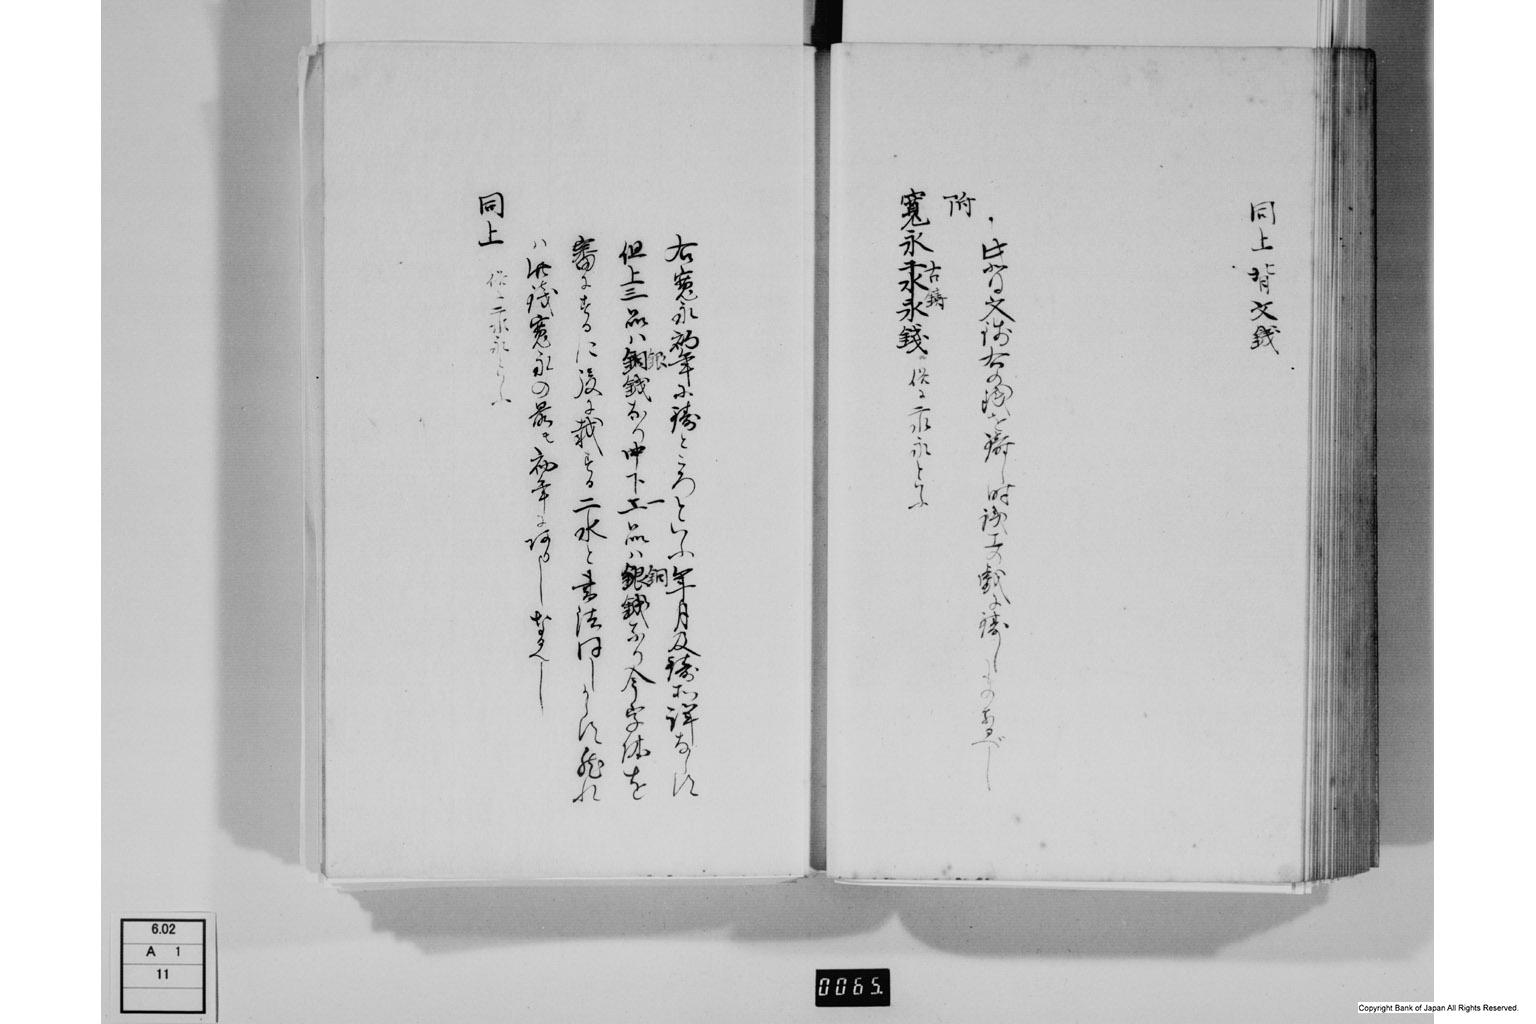 同上背文銭
此背文銭右の
鋳し時銭工の戯に鋳しものなるべし
附
寛永二水永銭
古鋳
俗に二水永といふ
右寛永初年に鋳ところといふ年月及鋳所詳ならす
但上三品ハ銅銭なり中下二品ハ銀銭なり今字体を
銀
一
銅
審にするに後に載する二水と書法同しからす然れ
ハ此銭寛永の最も初年にありしなるへし
同上
俗に二水永といふ
6.02
A 1
11
0065.
Copyright Bank of Japan All Rights Reserved.